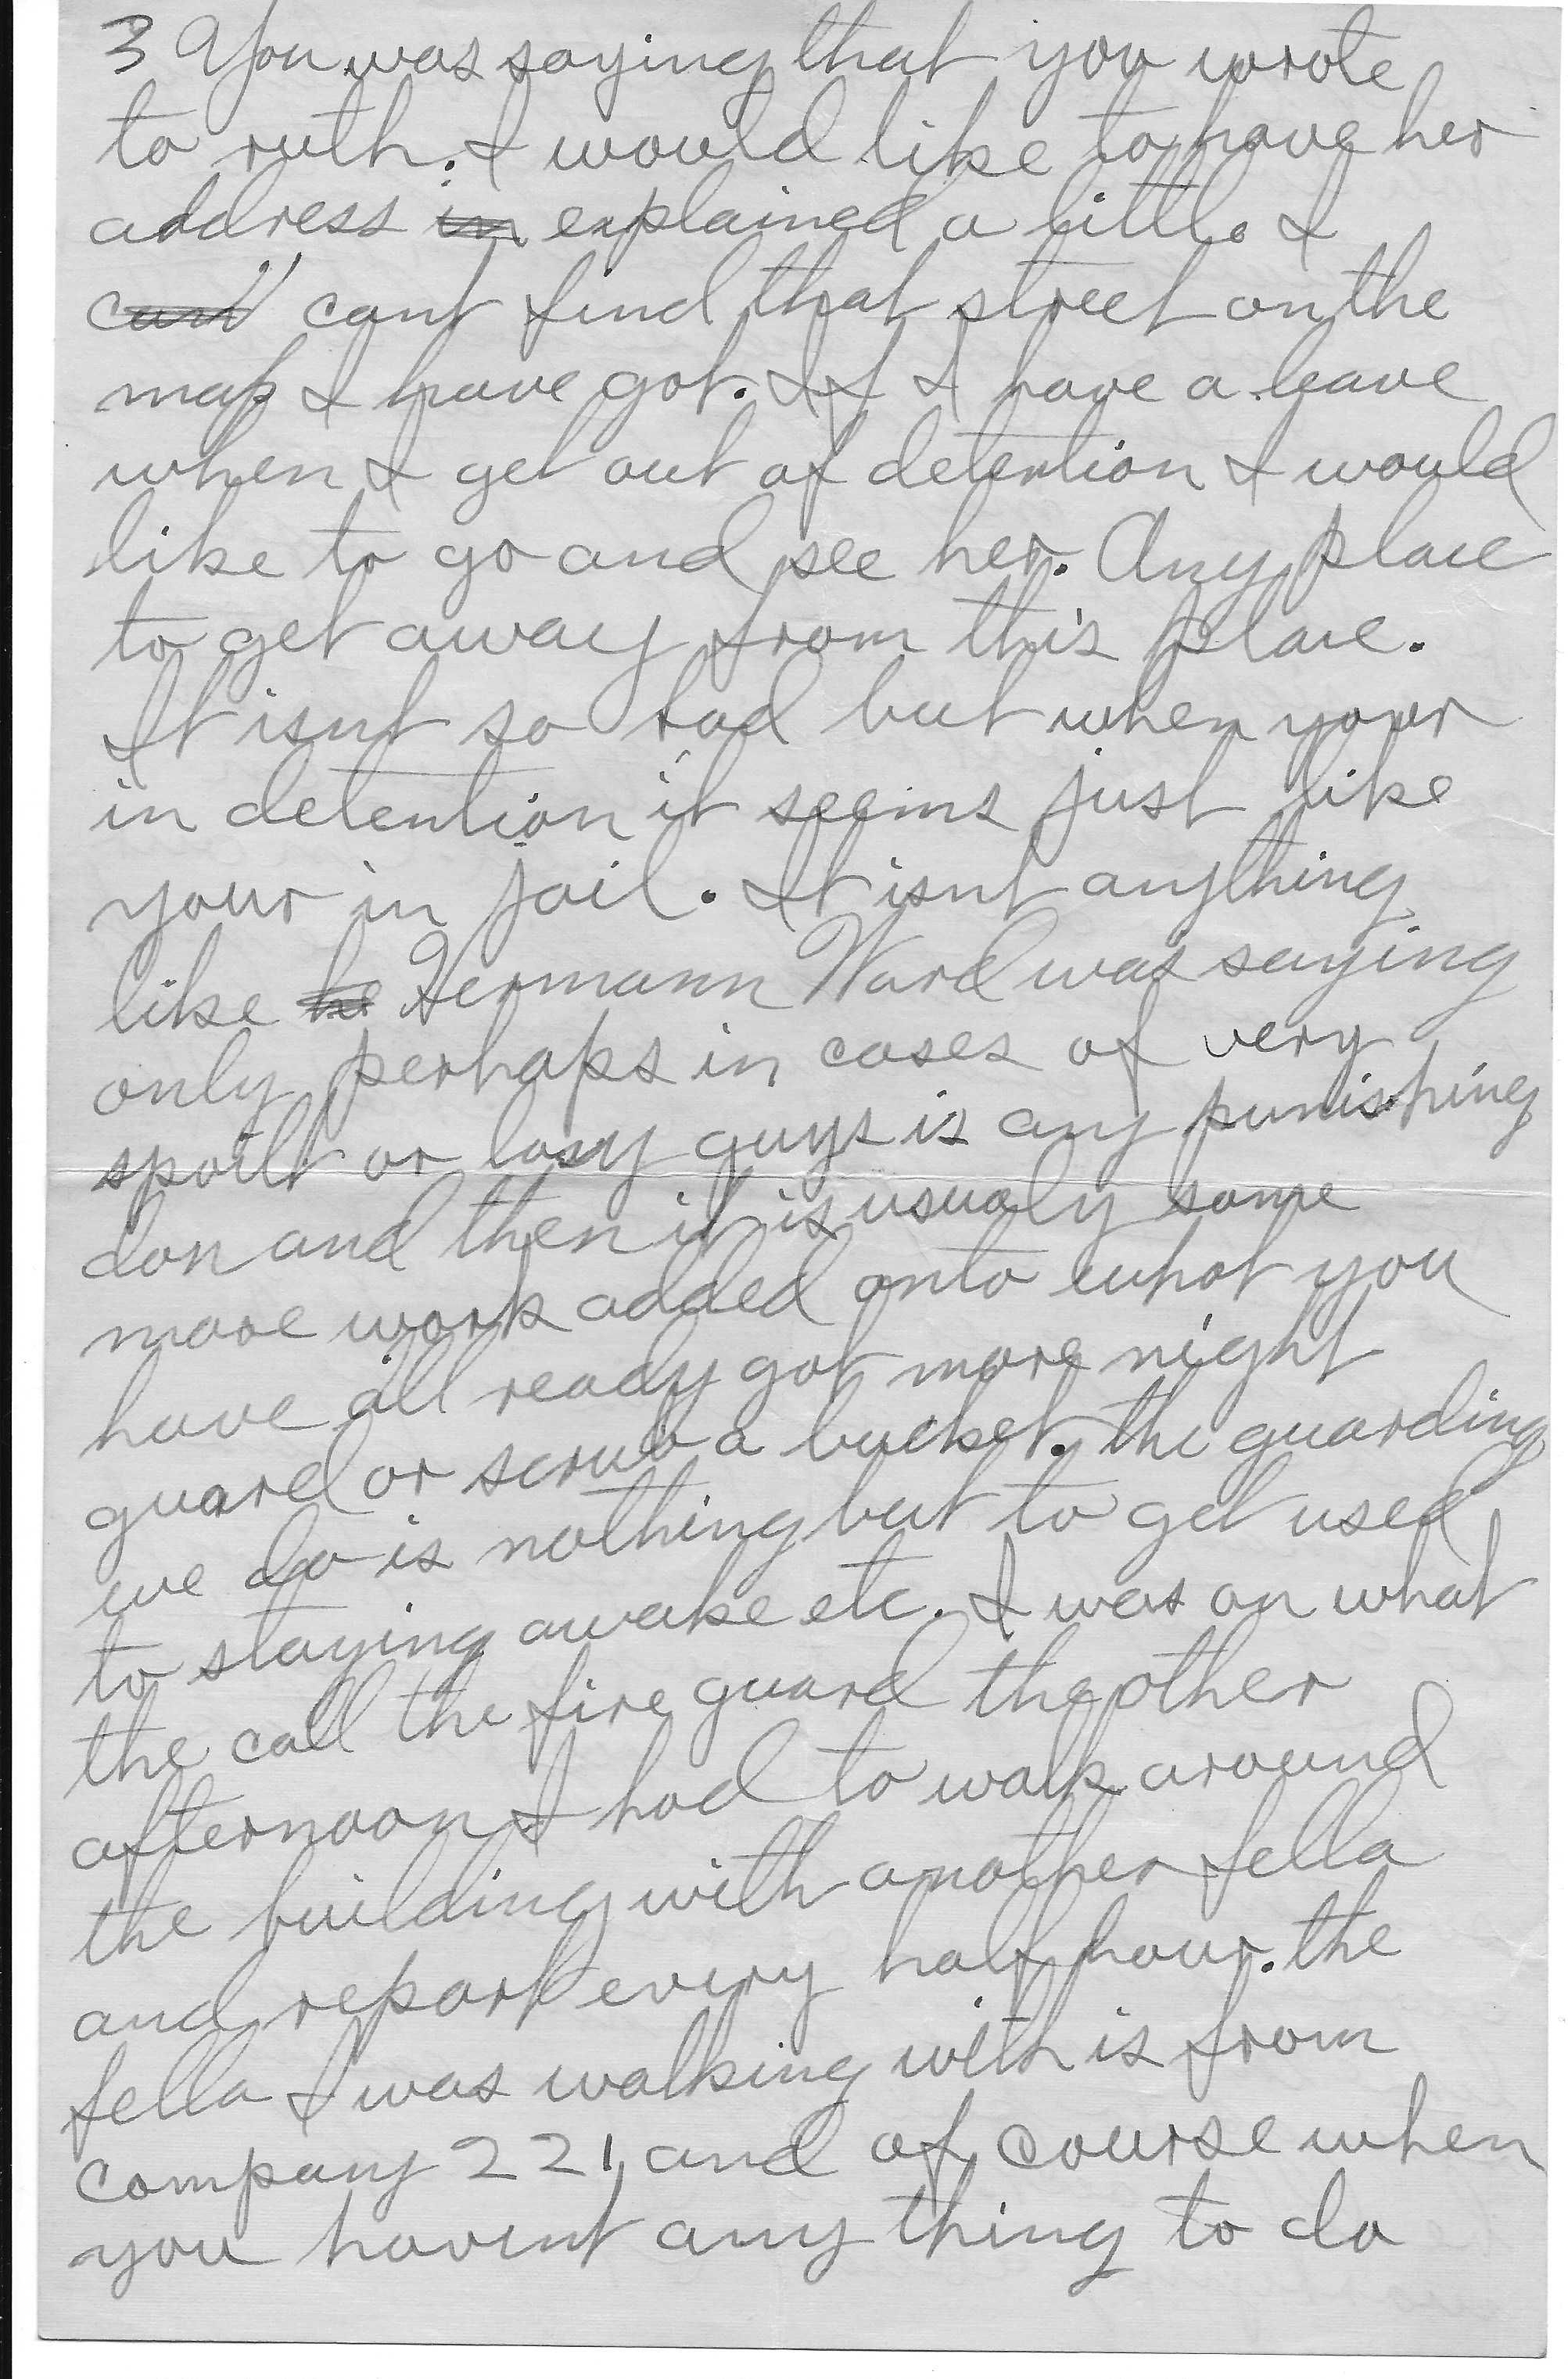 3 You was saying that you wrote
to ruth. I would like to have her
address in explained a little I
can" cant find that street on the
map I have got. If I have a leave
when I get out of detention I would
like to go and see her. Any place
to get away from this place.
It isnt so bad but when your
in detention it seems just like
your in jail. It isnt anything
like he Hermann Ward was saying
only perhaps in cases of very
spoilt or lasy guys is any punishing
don and then it is usualy some
more work added onto what you
have all ready got more night
guard or scrub a bucket. the guarding
we do is nothing but to get used
to staying awake etc. I was on what
the call the fire guard the other
afternoon I had to walk around
the building with another fella
and report every half hour. the
fella I was walking with is from
company 221 and of course when
you havent any thing to do